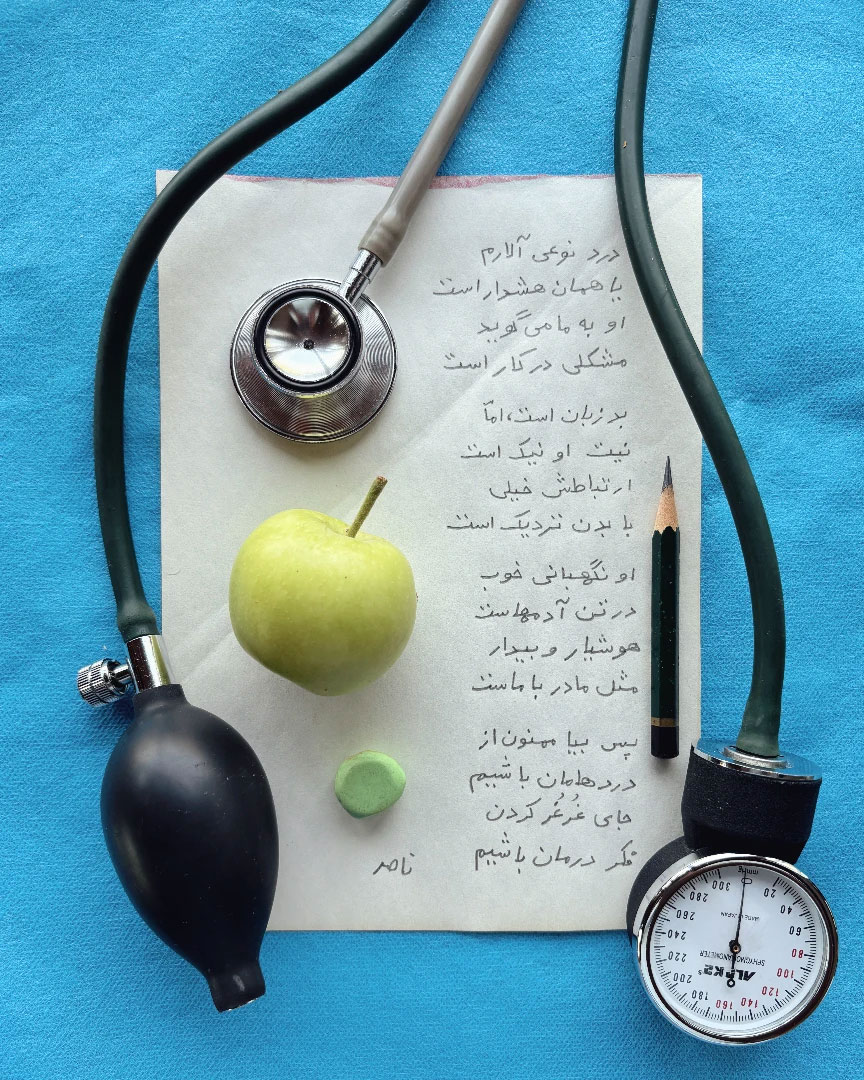 درد نوعی آلارم
یا همان هشدار است
او به ما می‌گوید
مشکلی در کار است
بد زبان است، امّا
نیت او نیک است
ارتباطش خیلی
با بدن نزدیک است
او نگهبانی خوب
در تن آدمهاست
هوشیار و بیدار
مثل مادر با ماست
پس بیا ممنون از
دردهامان باشیم
جای غُرغُر کردن
فکر درمان باشیم
ناصر
mmHg
0
20
40
60
80
100
120
140
160
180
200
220
240
260
280
300
MADE IN JAPAN
SPHYGMOMANOMETER
ALPK2